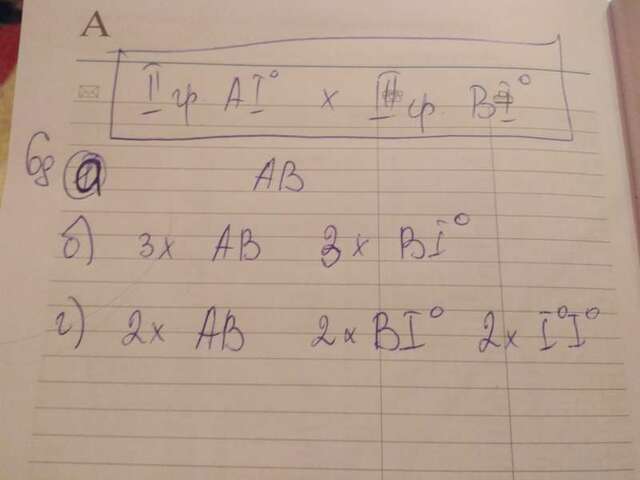 А
II гр. AI⁰ x III гр. BI⁰
а AB
б) 3x AB 3x BI⁰
г) 2x AB 2x BI⁰ 2x I⁰I⁰